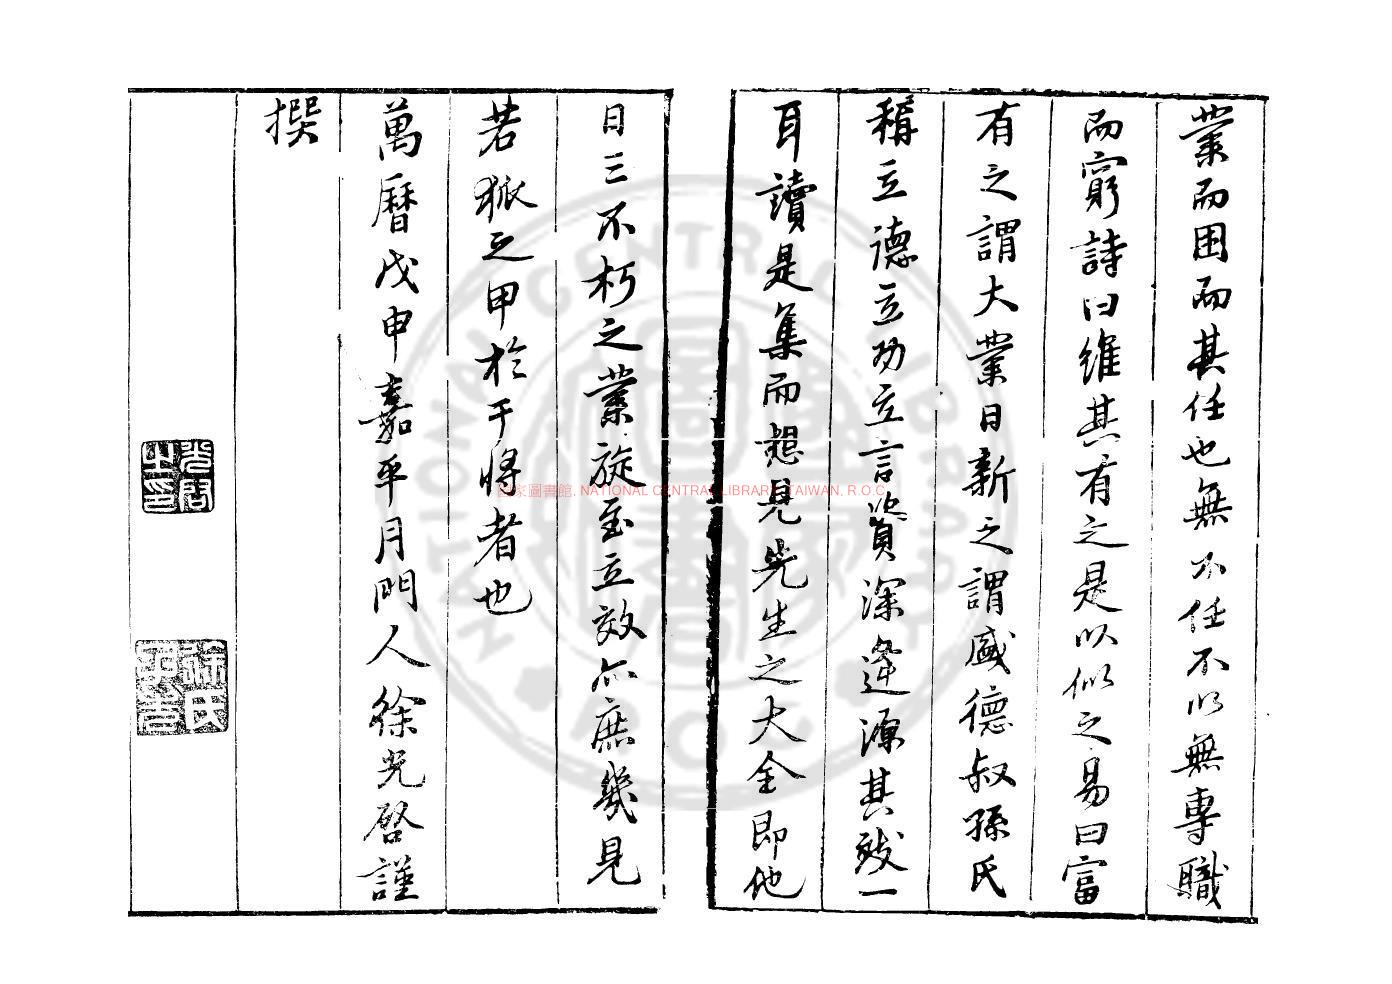 業而困而其任也無不任不以無專職
而窮詩曰維其有之是以似之易曰富
有之謂大業日新之謂盛德叔孫氏
稱立德立功立言資深逢源其致一
耳讀是集而想見先生之大全即他
日三不朽之業旋至立效亦庶幾見
若狐之甲於干將者也
萬曆戊申嘉平月門人徐光啓謹
撰
光启之印
徐氏
國家圖書館. NATIONAL CENTRAL LIBRARY, TAIWAN. R.O.C